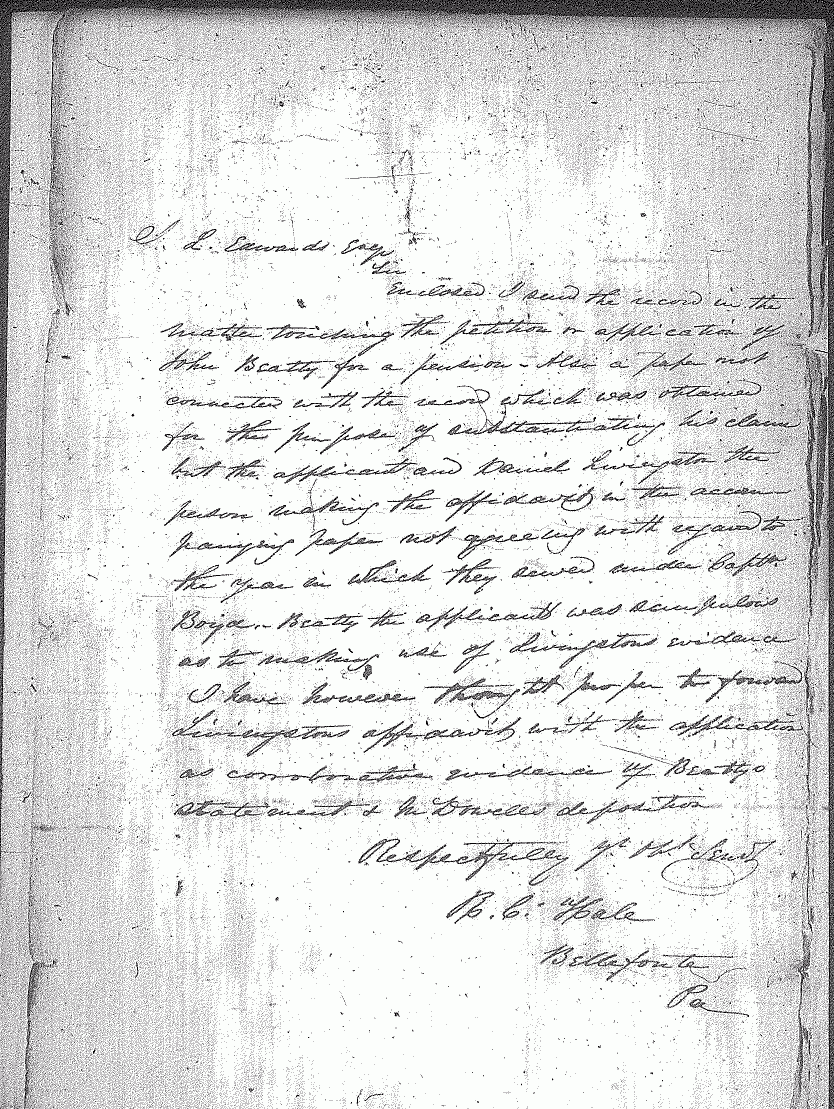 J. L. Edwards Esqr
Sir
Enclosed I send the record in the
matter touching the petition or application of
John Beatty for a pension - Also a paper not
connected with the record which was obtained
for the purpose of substantiating his claim
but the applicant and Daniel Livingston the
person making the affidavit in the accom-
panying paper not agreeing with regard to
the year in which they served under Captn
Boyd - Beatty the applicant was scrupulous
as to making use of Livingstons evidence
I have however thought proper to forward
Livingstons affidavit with the application
as corroborative evidence of Beattys
statement & McDowells deposition
Respectfully yr Obt Servt
R. C. Hale
Bellefonte
Pa